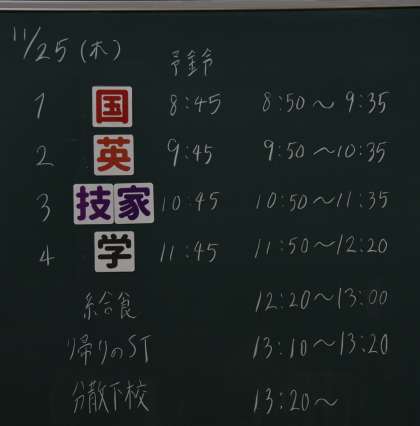 11/25(木)
予鈴
1 国 8:45 8:50〜9:35
2 英 9:45 9:50〜10:35
3 技家 10:45 10:50〜11:35
4 学 11:45 11:50〜12:20
給食 12:20〜13:00
帰りのST 13:10〜13:20
分散下校 13:20〜